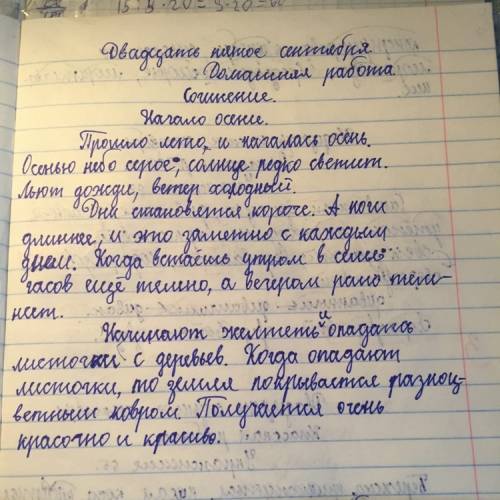 15:5·20=3·20=60
Двадцать пятое сентября.
Домашняя работа
Сочинение.
Начало осени.
Прошло лето, и началась осень.
Осенью небо серое, солнце редко светит.
Льют дожди, ветер холодный.
Дни становятся короче. А ночи
длиннее, и это заметно с каждым
днем. Когда встаешь утром в семь
часов ещё темно, а вечером рано тем-
неет.
Начинают желтеть и опадать
листочки с деревьев. Когда опадают
листочки, то земля покрывается разноц-
ветным ковром. Получается очень
красочно и красиво.